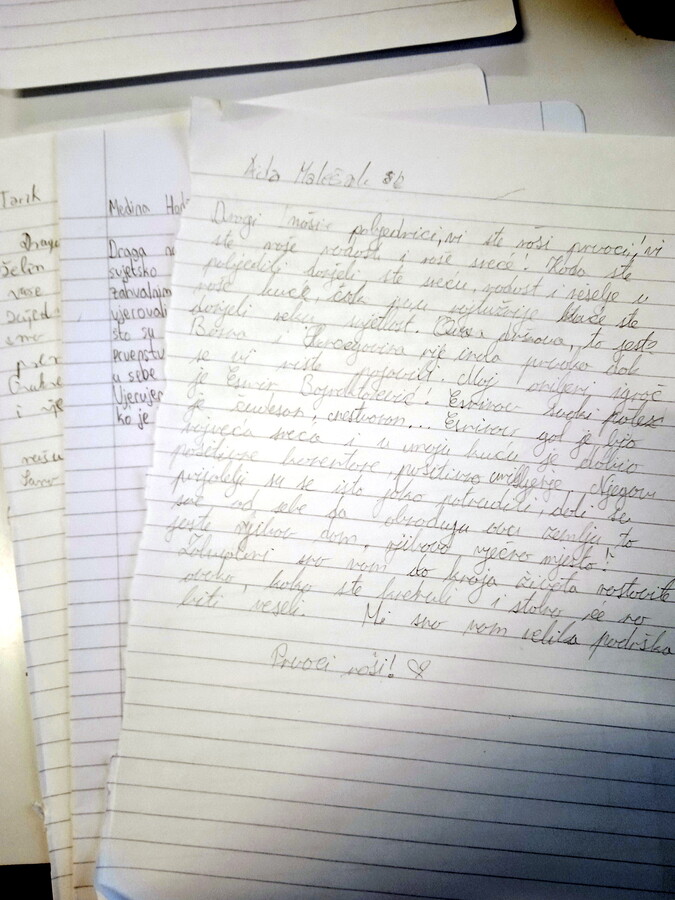 Tarik
Draga
želin
vase
smo
i vje
našu
Medina Had
Draga na
svjetsko
zahvaljujem
vjerovali
što su
prvenstvu
u sebe
Vjerujem
ko je
Aida 5b
Dragi naši pobjednici, vi ste naši prvaci! Vi
ste naše radosti i naše sreće! Kada ste
pobijedili donjeli ste sreću, radost i veselje u
naše kuće, čak i u najtužnije kuće ste
donjeli neku svjetlost. država, to jeste
Bosna i Hercegovina nije imala prvaka dok
se vi niste pojavili. Moj omiljeni igrač
je Esmir Bajraktarević! Esmirov svaki potez
je čudesan, nestvaran... Esmirov gol je bio
najveća sreća i u moju kuću je dobio
pozitivne komentare, pozitivno mišljenje. Njegovi
prijatelji su se isto jako potrudili, dali su
sve od sebe da obraduju ovu zemlju to
jeste njihov dom, njihovo vječno mjesto!
Zahvalni smo vam do kraja života nastavite
ovako, kako ste krenuli i stalno će mo
biti veseli. Mi smo vam velika podrška
Prvaci naši! ♡